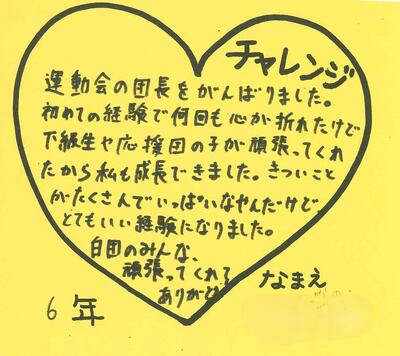 チャレンジ
運動会の団長をがんばりました。
初めての経験で何回も心が折れたけど
下級生や応援団の子が頑張ってくれ
たから私も成長できました。きついこと
がたくさんでいっぱいなやんだけど、
とてもいい経験になりました。
白団のみんな、
頑張ってくれて
ありがとう
なまえ
6年